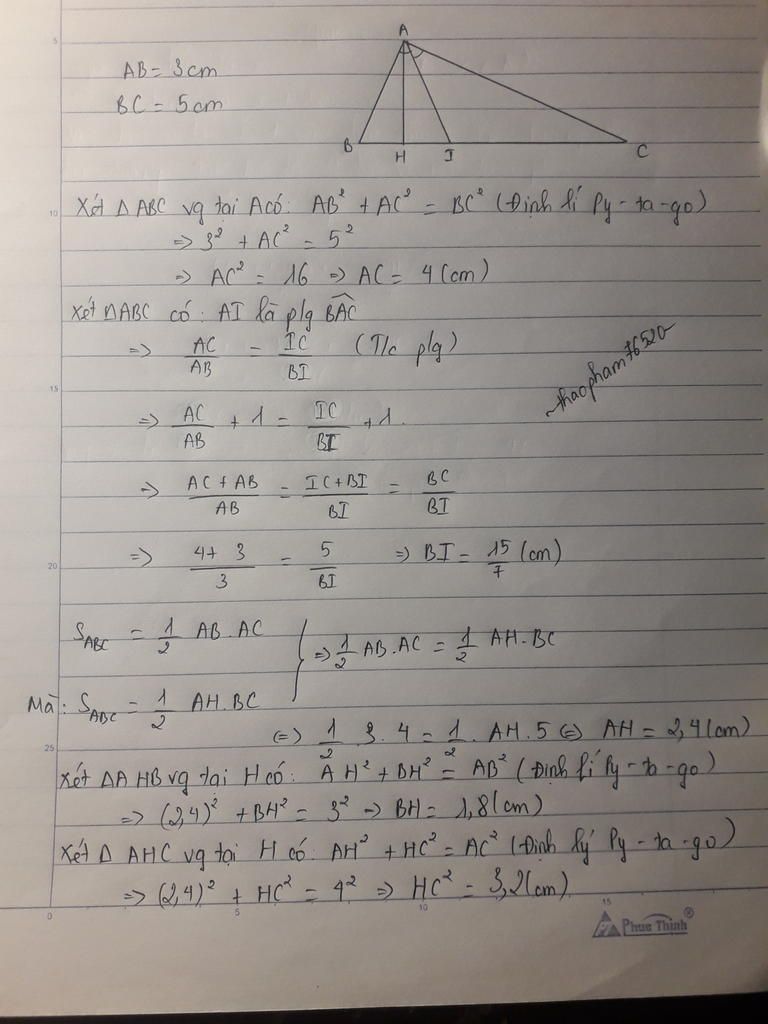 A
AB = 3cm
BC = 5cm
B H I C
Xét Δ ABC vg tại A có: AB² + AC² = BC² (Định lí Py-ta-go)
=> 3² + AC² = 5²
=> AC² = 16 => AC = 4 (cm)
Xét ΔABC có: AI là p/g BAC
=> AC/AB = IC/BI (T/c p/g)
=> AC/AB + 1 = IC/BI + 1.
=> AC + AB/AB = IC + BI/BI = BC/BI
=> 4 + 3/3 = 5/BI => BI = 15/7 (cm)
S_ABC = 1/2 AB.AC
=> 1/2 AB.AC = 1/2 AH.BC
Mà: S_ABC = 1/2 AH.BC
<=> 1/2 3.4 = 1/2 . AH.5 <=> AH = 2,4 (cm)
Xét ΔAHB vg tại H có: AH² + BH² = AB² (Định lí Py-ta-go)
=> (2,4)² + BH² = 3² => BH = 1,8 (cm)
Xét Δ AHC vg tại H có: AH² + HC² = AC² (Định lý Py-ta-go)
=> (2,4)² + HC² = 4² => HC² = 3,2 (cm)
thaopham76520
5
10
15
20
25
0 5 10 15
Phuc Thinh®